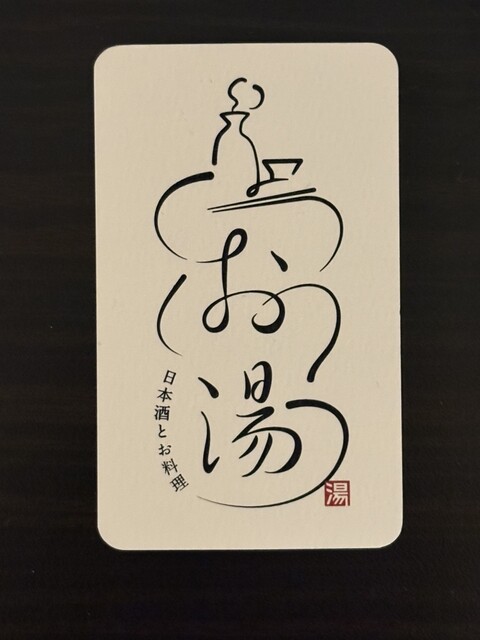 お湯
日本酒とお料理
湯